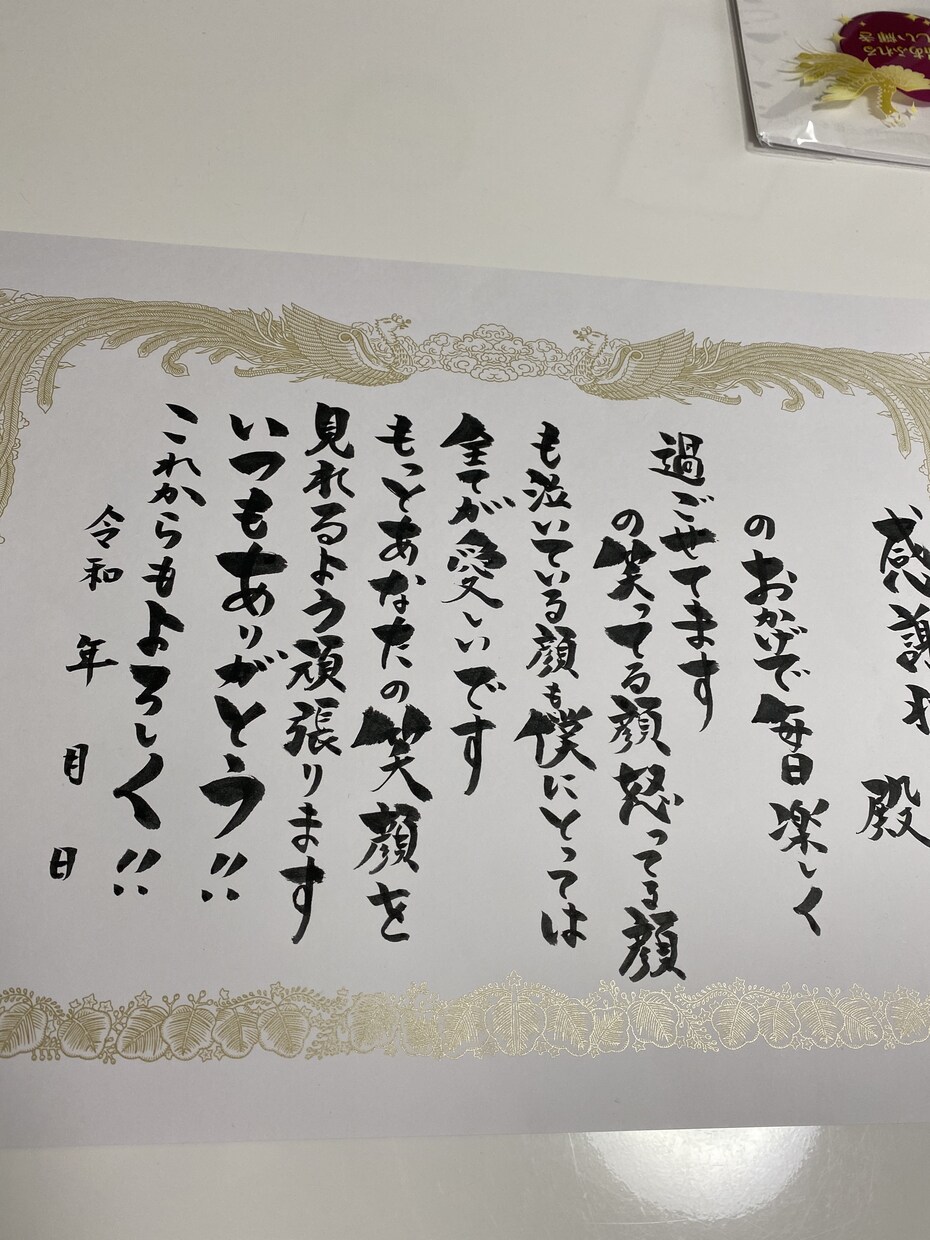 感謝状
殿
のおかげで毎日楽しく
過ごせてます
の笑ってる顔怒ってる顔
も泣いている顔も僕にとっては
全てが愛しいです
もっとあなたの笑顔を
見れるよう頑張ります
いつもありがとう!!
これからもよろしく!!
令和 年 月 日
あふれる
しい輝き